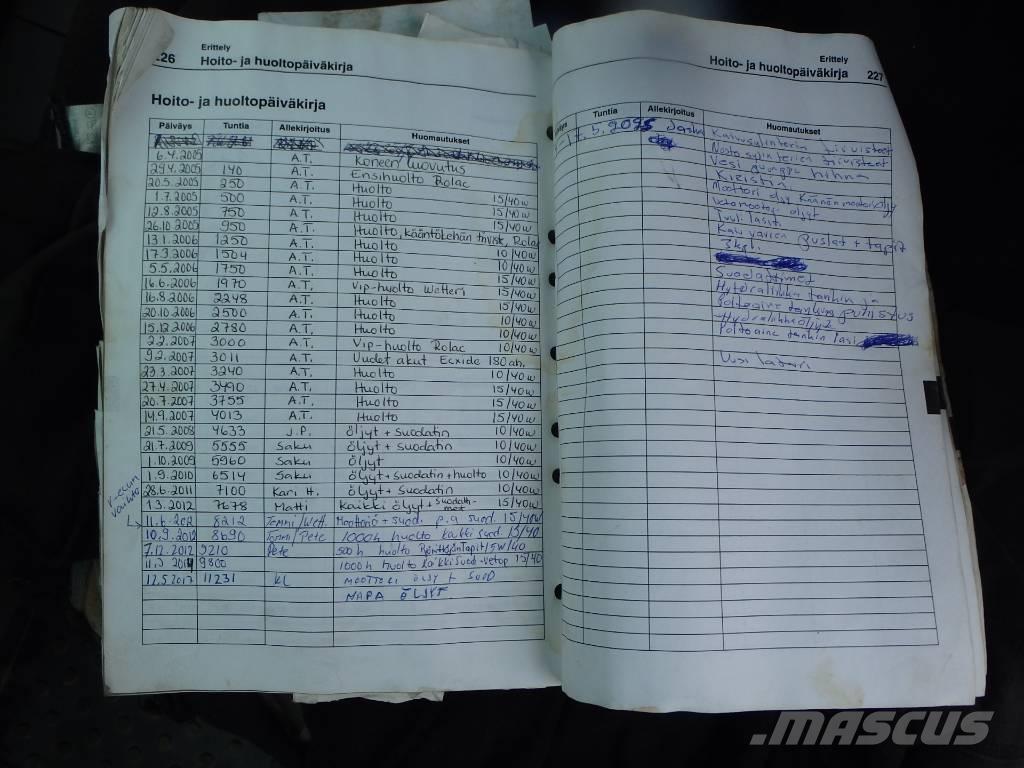 26
Erittely
Hoito- ja huoltopäiväkirja
Hoito- ja huoltopäiväkirja
Päiväys Tuntia Allekirjoitus Huomautukset
6.4.2005 A.T. Koneen luovutus
29.4.2005 140 A.T. Ensihuolto Rolac
20.5.2005 250 A.T. Huolto
1.7.2005 500 A.T. Huolto 15/40w
12.8.2005 750 A.T. Huolto 15/40w
26.10.2005 950 A.T. Huolto, kääntökehän tiivist, Rolac 15/40w
13.1.2006 1250 A.T. Huolto
17.3.2006 1504 A.T. Huolto 10/40w
5.5.2006 1750 A.T. Huolto 10/40w
16.6.2006 1970 A.T. Vip-huolto Wetteri 15/40w
16.8.2006 2248 A.T. Huolto 15/40w
20.10.2006 2500 A.T. Huolto 15/40w
15.12.2006 2780 A.T. Huolto 10/40w
2.2.2007 3000 A.T. Vip-huolto Rolac 10/40w
9.2.2007 3011 A.T. Uudet akut Ecxide 180 ah.
23.3.2007 3240 A.T. Huolto 10/40w
27.4.2007 3490 A.T. Huolto 15/40w
20.7.2007 3755 A.T. Huolto 15/40w
14.9.2007 4013 A.T. Huolto 15/40w
21.5.2008 4633 J.P. öljyt + suodatin 10/40w
21.7.2009 5555 Saku öljyt + suodatin 10/40w
1.10.2009 5960 Saku öljyt 10/40w
1.9.2010 6514 Saku öljyt + suodatin + huolto 10/40w
28.6.2011 7100 Kari H. öljyt + Suodatin 10/40w
1.3.2012 7678 Matti Kaikki öljyt + 15/40w
8212 Tommi/Wett. + suod. p.a suod. 15/40w
10.9.2012 8690 Tommi/Pete 1000h huolto kaikki suod. 15/40
7.12.2012 9210 Pete 500 h huolto 15W/40
9800 1000 h huolto kaikki suod 15/40
12.5.2017 11231 MOOTTORI ÖLJY + SUOD
NAPA ÖLJYT
Erittely
Hoito- ja huoltopäiväkirja 227
Tuntia Allekirjoitus Huomautukset
Kaivusylinterin tiivisteet
Nosto sylinterien tiivisteet
Vesi pumpun hihna
Kiristin
Moottori öljy Käännönmoottoriöljy
Vetomoottori öljyt
Tuuli lasit
Kaivuvarren Puslat + tapit
3kpl.
Suodattimet
Hydrauliikka tankin ja
Polttoaine tankin puhdistus
Hydrauliikkaöljyt
Polttoaine tankin lasi
Uusi laturi
.MASCUS